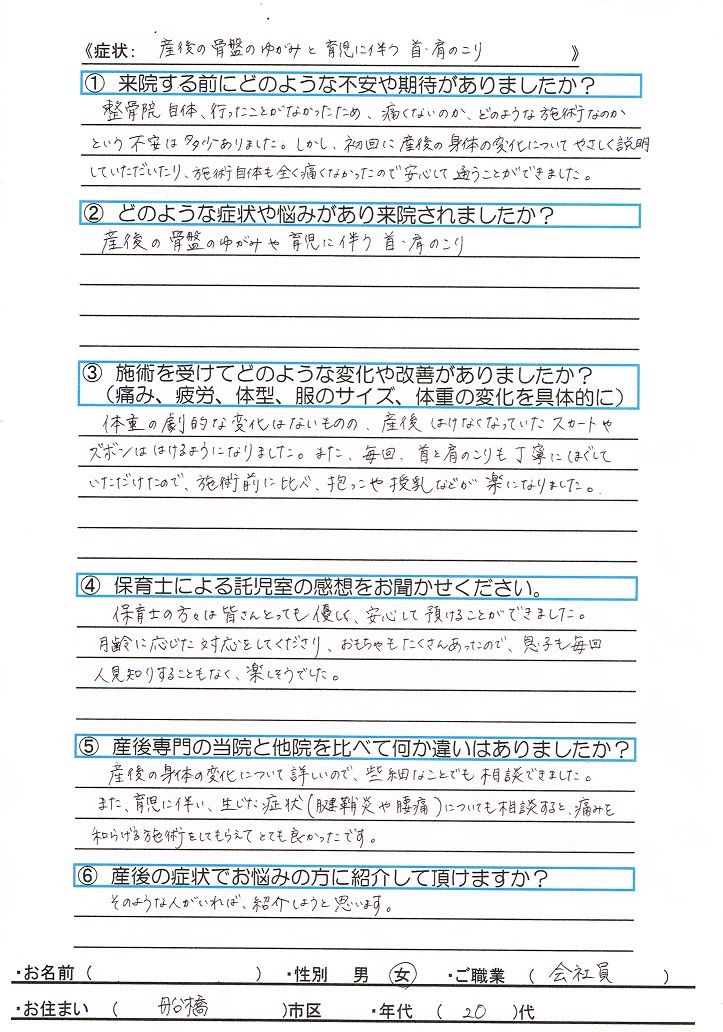 《症状： 産後の骨盤のゆがみと育児に伴う首・肩のこり 》
① 来院する前にどのような不安や期待がありましたか？
整骨院自体、行ったことがなかったため、痛くないのか、どのような施術なのか
という不安は多少ありました。しかし、初回に産後の身体の変化についてやさしく説明
していただいたり、施術自体も全く痛くなかったので安心して通うことができました。
② どのような症状や悩みがあり来院されましたか？
産後の骨盤のゆがみや育児に伴う首・肩のこり
③ 施術を受けてどのような変化や改善がありましたか？
（痛み、疲労、体型、服のサイズ、体重の変化を具体的に）
体重の劇的な変化はないものの、産後はけなくなっていたスカートや
ズボンははけるようになりました。また、毎回、首と肩のこりも丁寧にほぐして
いただけたので、施術前に比べ、抱っこや授乳などが楽になりました。
④ 保育士による託児室の感想をお聞かせください。
保育士の方々は皆さんとっても優しく、安心して預けることができました。
月齢に応じた対応をしてくださり、おもちゃもたくさんあったので、息子も毎回
人見知りすることもなく、楽しそうでした。
⑤ 産後専門の当院と他院を比べて何か違いはありましたか？
産後の身体の変化について詳しいので、些細なことでも相談できました。
また、育児に伴い、生じた症状（腱鞘炎や腰痛）についても相談すると、痛みを
和らげる施術をしてもらえてとても良かったです。
⑥ 産後の症状でお悩みの方に紹介して頂けますか？
そのような人がいれば、紹介しようと思います。
・お名前（ ） ・性別 男 女 ・ご職業 （ 会社員 ）
・お住まい （ 船橋 ）市区 ・年代 （ 20 ）代